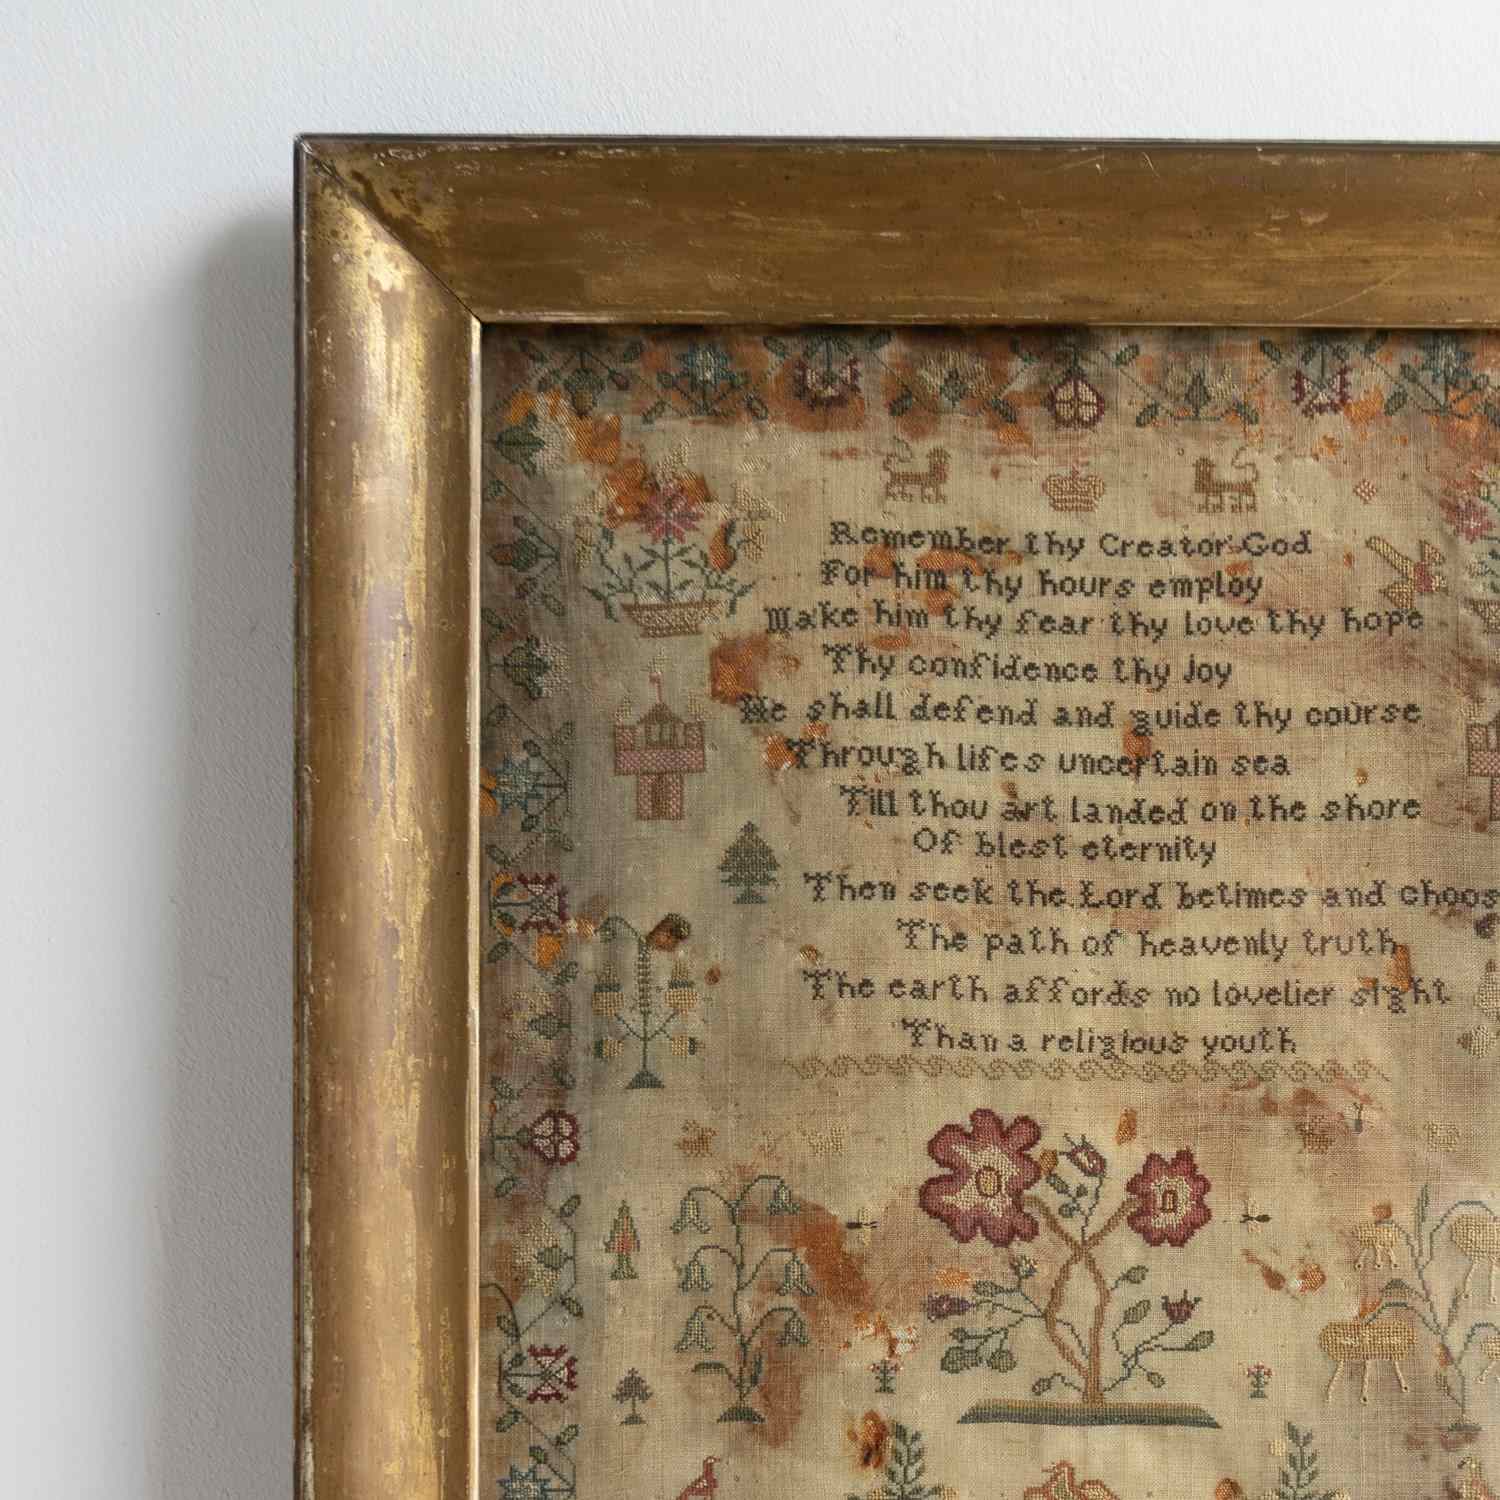 Remember thy Creator God
For him thy hours employ
Make him thy fear thy love thy hope
Thy confidence thy joy
He shall defend and guide thy course
Through lifes uncertain sea
Till thou art landed on the shore
Of blest eternity
Then seek the Lord betimes and choos
The path of heavenly truth
The earth affords no lovelier sight
Than a religious youth